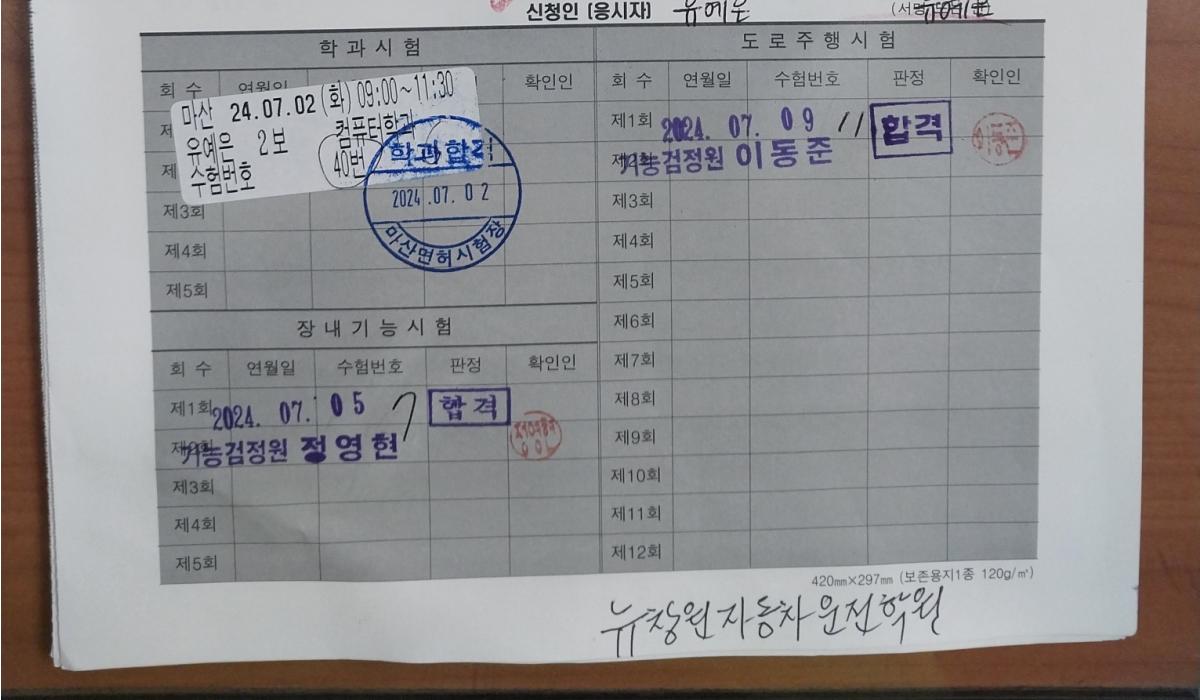 신청인 (응시자) 유예은 (서명
학 과 시 험
회 수 연월일 확인인
마산 24.07.02 (화) 09:00~11:30
유예은 2보 컴퓨터학과
수험번호 40번
학과합격
2024.07.02
마산면허시험장
제3회
제4회
제5회
장 내 기 능 시 험
회 수 연월일 수험번호 판정 확인인
제1회 2024. 07. 05 7 합격
기능검정원 정영현
제3회
제4회
제5회
도 로 주 행 시 험
회 수 연월일 수험번호 판정 확인인
제1회 2024. 07. 09 11 합격
기능검정원 이동준
제3회
제4회
제5회
제6회
제7회
제8회
제9회
제10회
제11회
제12회
420㎜×297㎜ (보존용지1종 120g/㎡)
뉴창원자동차운전학원